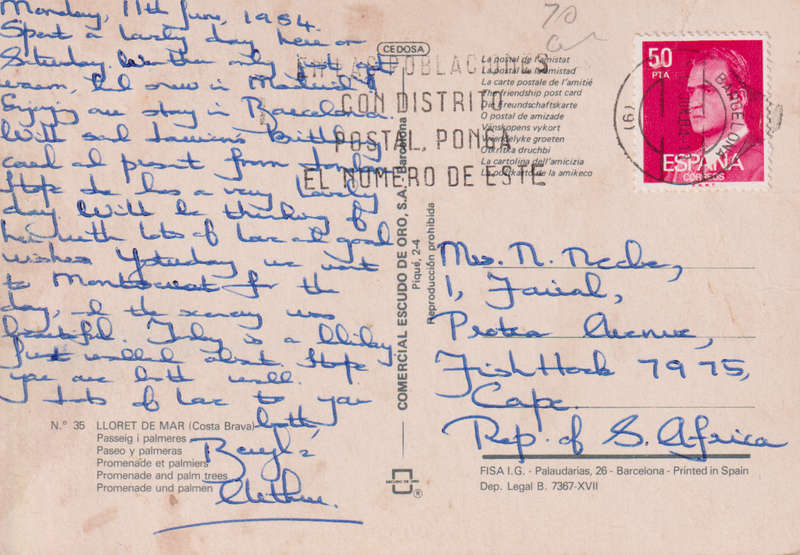 Monday, 11th June, 1984.
Spent a lovely day here on
Saturday. Weather only just
warm,
Enjoying our stay in Barcelona.
Will send Birthday
card & present from
Hope she has a very lovely
day. Will be thinking of
her with lots of love and good
wishes. Yesterday we went
to Montserrat for the
day, & the scenery was
beautiful. Today is a Holiday
just walked about. Hope
you are both well.
Lots of love to you
both,
Beryl &
Arthur.
70
CEDOSA
La postal de l'amistat
La postal de la amistad
La carte postale de l'amitié
The friendship post card
Die Freundschaftskarte
O postal de amizade
Vänskapens vykort
Vriendelijke groeten
Otkritka druchbi
La cartolina dell'amicizia
La postkarto de la amikeco
EN LAS POBLACIONES
CON DISTRITO
POSTAL, PONGA
EL NUMERO DE ESTE
50
PTA
ESPAÑA
CORREOS
BARCELONA
(6)
COMERCIAL ESCUDO DE ORO, S.A. Barcelona
Piqué, 2-4
Reproducción prohibida
Mrs. N.
1, Fairal,
Protea Avenue,
Fish Hoek 7975,
Cape.
Rep. of S. Africa
N.° 35 LLORET DE MAR (Costa Brava)
Passeig i palmeres
Paseo y palmeras
Promenade et palmiers
Promenade and palm trees
Promenade und palmen
ESCUDO DE ORO
®
FISA I.G. - Palaudarias, 26 - Barcelona - Printed in Spain
Dep. Legal B. 7367-XVII